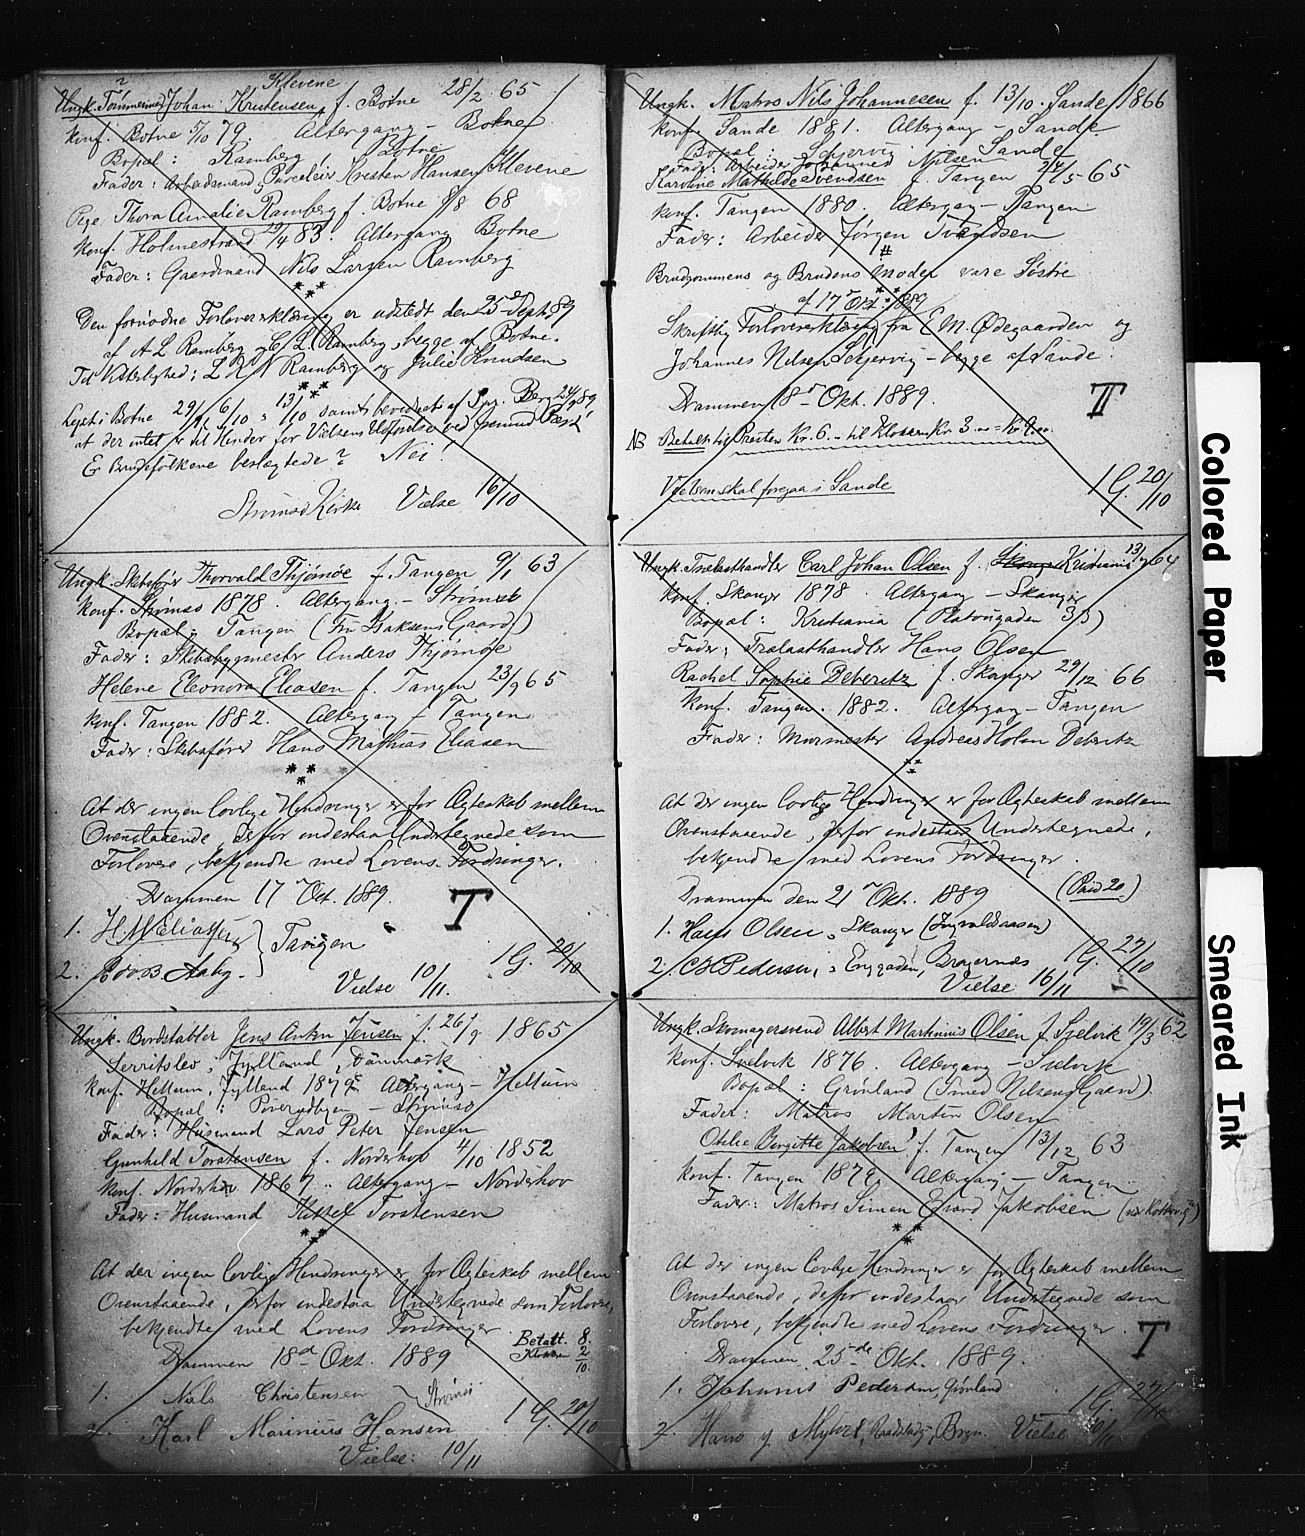 Klevene
Ungk. Tømmermd Johan Kristensen f. Botne 28/2 65
Konf. Botne 5/10 79. Altergang – Botne
Bopæl: Ramberg, Botne
Fader: Arbeidsmand, Parceleier Kristen Hansen Klevene
Pige Thora Amalie Ramberg f. Botne 8/8 68
Konf. Holmestrand 29/4 83. Altergang Botne
Fader: Gaardmand Nils Larsen Ramberg
Den fornødne Forloverserklæring er udstedt den 25de Sept. 89
af A L Ramberg og C. L. Ramberg, begge af Botne.
Til Vitterlighed: L R N Ramberg og Julie Knudsen
Lyst i Botne 29/9, 6/10 , 13/10 samt bevidnet af Spr. Berg 24/9 89
at der intet er til Hinder for Vielsens Udførelse ved
Er Brudefolkene beslægtede? Nei!
Strømsø Kirke Vielse 16/10
Ungk. Skibsfører Thorvald Thjømøe f. Tangen 9/1 63
Konf. Strømsø 1878. Altergang – Strømsø
Bopæl: Tangen (Fru Isaksens Gaard)
Fader: Skibsbygmester Anders Thjømøe
Helene Eleonora Eliasen f. Tangen 23/9 65
Konf. Tangen 1882. Altergang – Tangen
Fader: Skibsfører Hans Mathias Eliasen
At der ingen lovlige Hindringer er for Ægteskab mellem
Ovenstaaende, derfor indestaa Undertegnede som
Forlovere, bekjendte med Lovens Fordringer.
Drammen 17 Oct. 1889. T
1. H M Eliassen } Tangen
2. Aaby
1 G. 20/10
Vielse 10/11.
Ungk. Bordstabler Jens Anton Jensen f. 26/9 1865
Serritslev, Jylland, Danmark
Konf. Hellum, Jylland 1879. Altergang – Hellum
Bopæl: – Strømsø
Fader: Husmand Lars Peter Jensen
Gunhild Torstensen f. Norderhov 4/10 1852
Konf. Norderhov 1867. Altergang – Norderhov
Fader: Husmand Torstensen
At der ingen lovlige Hindringer er for Ægteskab mellem
Ovenstaaende, derfor indestaa Undertegnede som Forlovere,
bekjendte med Lovens Fordringer
Betalt. 8.
Klokken 2
10.
Drammen 18de Okt. 1889
1. Niels Christensen
Strømsø
2. Karl Marinius Hansen
1 G. 20/10
Vielse: 10/11
Ungk. Matros Nils Johannesen f. 13/10. Sande 1866
Konf. Sande 1881. Altergang – Sande
Bopæl: Seljervig Sande
Fader: Arbeider Johannes Nilsen
Karoline Mathilde Svendsen f. Tangen 24/5 65
Konf. Tangen 1880. Altergang – Tangen
Fader: Arbeider Jørgen Svendsen
#
Brudgommens og Brudens Moder vare Søstre
af 17de Okt. 1889
Skriftlig Forloverserklæring fra E M. Ødegaarden og
Johannes Nilsen Seljervig – begge af Sande.
Drammen 18de Okt. 1889. T
NB Betalt til Presten Kr. 6. – til Klokkeren Kr. 3. = Kr 9.
Vielsen skal foregaa i Sande
1 G. 20/10
Ungk. Trælasthandler Carl Johan Olsen f. Kristiania 64
Konf. Skanger 1878. Altergang – Skanger
Bopæl: Kristiania (Platousgaden 33)
Fader: Trælasthandler Hans Olsen
Rachel Sophie Deberitz f. Skanger 29/12 66
Konf. Tangen. 1882. Altergang – Tangen
Fader: Murmester Andreas Holm Deberitz
At der ingen lovlige Hindringer er for Ægteskab mellem
Ovenstaaende, derfor indestaar Undertegnede,
bekjendte med Lovens Fordringer.
Drammen den 21de Okt. 1889 (Paid 20)
1. Hans Olsen, Skanger
2. C H Pedersen, Enggaden, Bragernæs
1 G. 27/10
Vielse 16/11
Ungk. Skomagersvend Albert Martinius Olsen f. Svelvik 19/3 62
Konf. Svelvik 1876. Altergang – Svelvik
Bopæl: Grønland (Smed Nilsens Gaard).
Fader: Matros Martin Olsen
Othilie Birgitte Jakobsen f. Tangen 13/12 63
Konf. Tangen 1879. Altergang – Tangen.
Fader: Matros Simen Edvard Jakobsen
At der ingen lovlige Hindringer er for Ægteskab mellem
Ovenstaaende, derfor indestaar Undertegnede som
Forlovere, bekjendte med Lovens Fordringer. T
Drammen 25de Okt. 1889.
1. Johannes Pedersen, Grønland
2. Hans Bragn.
1 G. 27/10
Vielse 10/11
Colored Paper
Smeared Ink